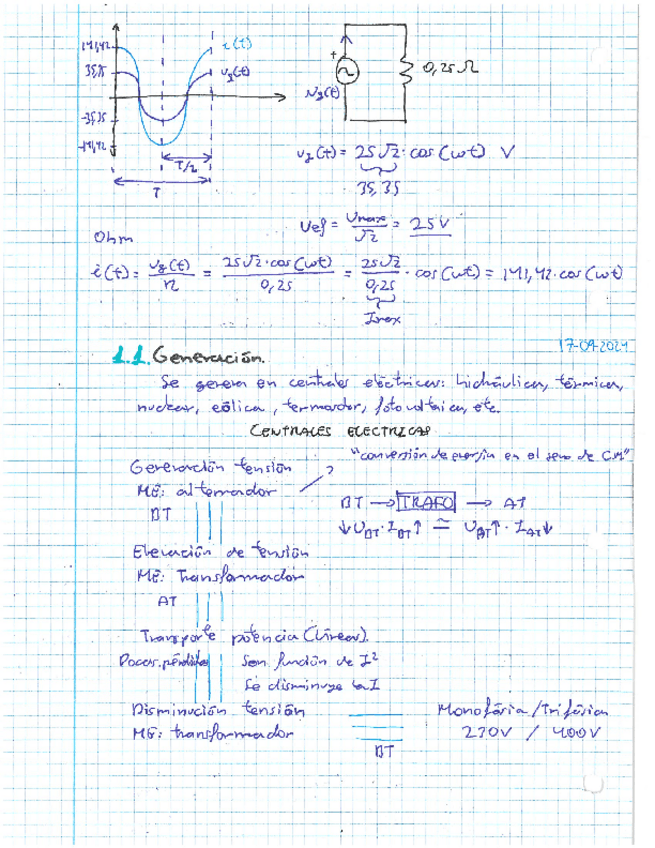 141,42
35,35
-35,35
-141,42
i(t)
v_g(t)
T/2
T
+
v_g(t)
0,25 Ω
v_g(t) = 25√2 · cos(ωt) V
35,35
Uef = Umax/√2 = 25 V
Ohm
i(t) = v_g(t)/R = 25√2·cos(ωt)/0,25 = 25√2/0,25 · cos(ωt) = 141,42·cos(ωt)
Imax
17-09-2024
1.1. Generación.
Se genera en centrales eléctricas: hidráulica, térmica,
nuclear, eólica, termosolar, fotovoltaica, etc.
CENTRALES ELECTRICAS
"conversión de energía en el seno de CM"
Generación tensión
ME: alternador
BT
BT → TRAFO → AT
↓U_BT · I_BT↑ ≃ U_AT↑ · I_AT↓
Elevación de tensión
ME: Transformador
AT
Transporte potencia (Líneas).
Pocas pérdidas Son función de I²
Se disminuye la I
Disminución tensión
ME: transformador
BT
Monofásica/Trifásica
230V / 400V